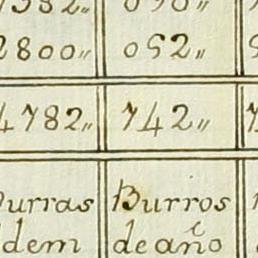 2800〃 052〃
4782〃 742〃
Burras Burros
Idem de año